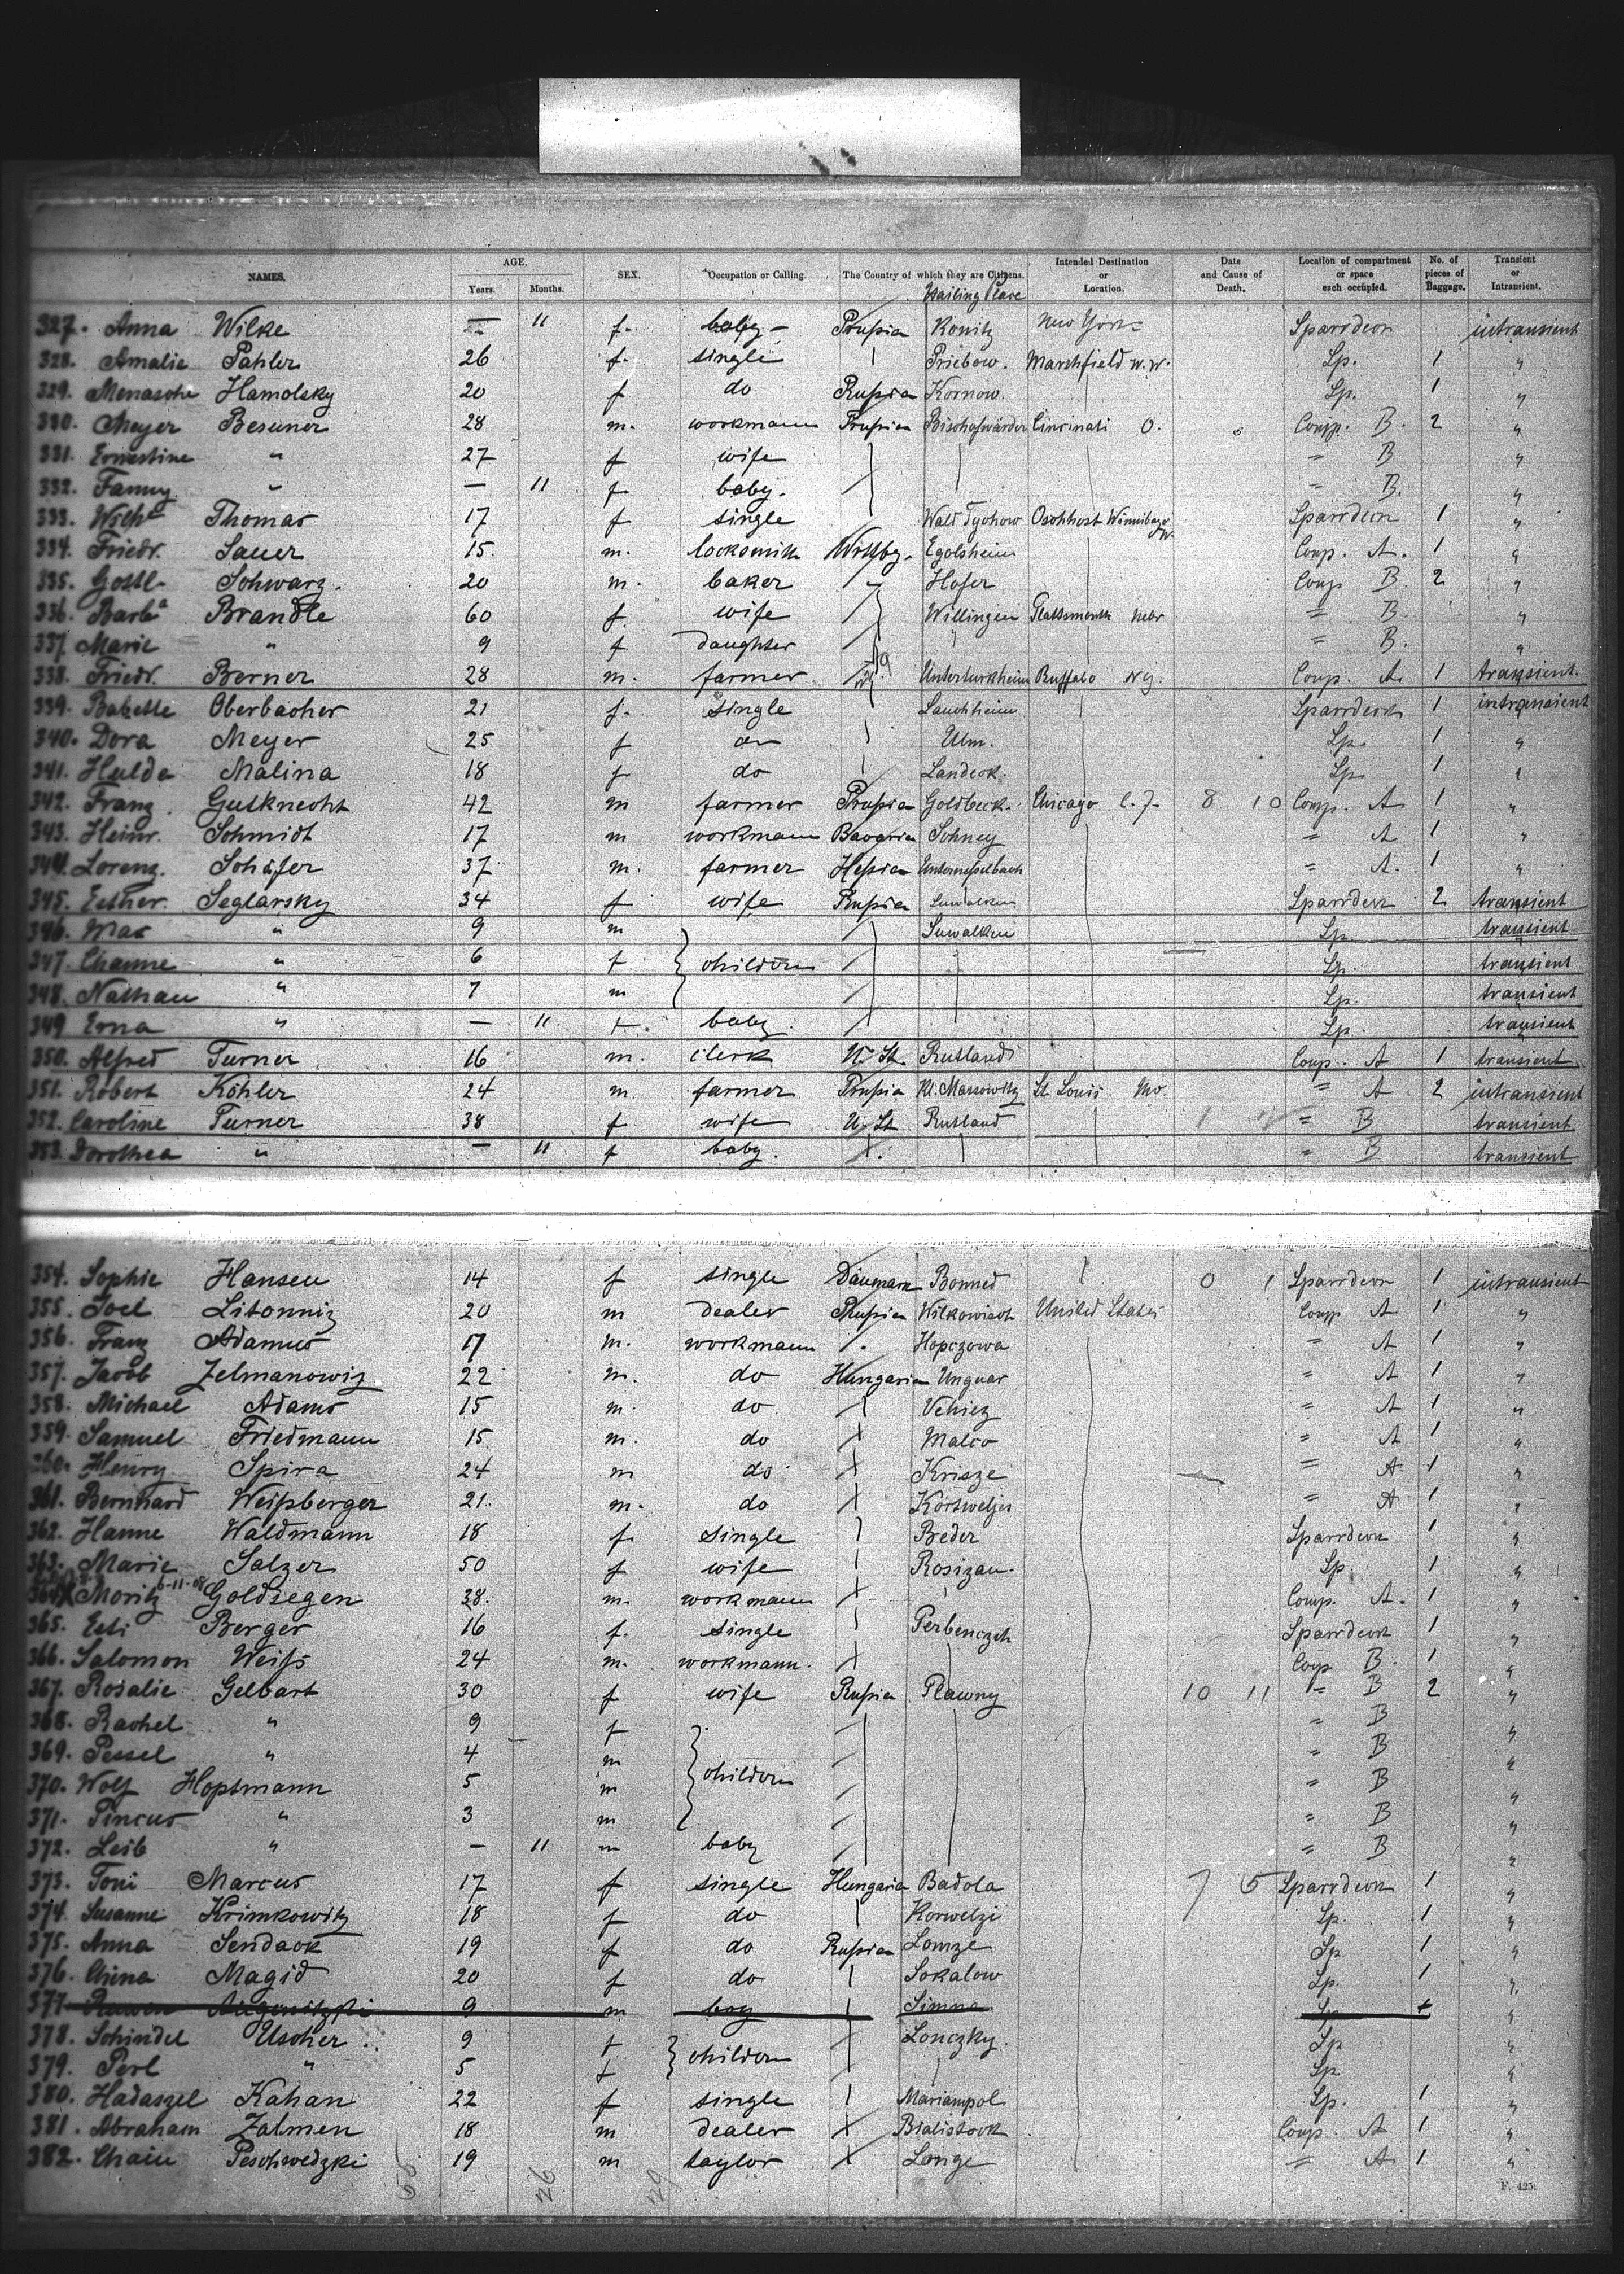 NAMES. AGE. Years. Months. SEX. Occupation or Calling. The Country of which they are Citizens. Intended Destination or Location. Date and Cause of Death. Location of compartment or space each occupied. No. of pieces of Baggage. Transient or Intransient.
Hailing Place
327. Anna Wilke — 11 f. baby Prussia Konitz New York Sparrdeck intransient
328. Amalie Pahler 26 f. single Priebow. Marshfield W.W. Sp. 1 "
329. Menasche Hamolsky 20 f do Russia Kornow. Sp. 1 "
330. Meyer Besuner 28 m. workmann Prussia Bischofswärder Cincinati O. Comp. B. 2 "
331. Ernestine " 27 f wife " B "
332. Fanny " — 11 f. baby. " B. "
333. Wilh. Thomas 17 f single Wald Tychow Oschhost Winnibago W. Sparrdeck 1 "
334. Friedr. Sauer 15. m. locksmith Wttbg. Egolsheim Comp. A. 1 "
335. Gottl. Schwarz. 20 m. baker " Hofer Comp B. 2 "
336. Barba Brandle 60 f. wife Willingen Plattsmouth Nebr " B. "
337. Marie " 9 f daughter " B. "
338. Friedr. Berner 28 m. farmer Unterturkheim Buffalo Ny. Comp. A. 1 transient.
339. Babette Oberbacher 21 f. single Lauchheim Sparrdeck 1 intransient
340. Dora Meyer 25 f do Ulm. Sp. 1 "
341. Hulda Malina 18 f do Landeck. Sp. 1 "
342. Franz Gutknecht 42 m farmer Prussia Goldbeck. Chicago 8 10 Comp. A 1 "
343. Heinr. Schmidt 17 m workmann Bavaria Schney " A 1 "
344. Lorenz. Schäfer 37 m. farmer Hessia Unternesselbach " A. 1 "
345. Esther Seglarsky 34 f wife Russia Suwalken Sparrdeck 2 transient
346. Max " 9 m Suwalken Sp. transient
347. Channe " 6 f children Sp. transient
348. Nathan " 7 m Sp. transient
349 Erna " — 11. f. baby. Sp. transient
350. Alfred Turner 16 m. clerk U. St. Rutland Comp. A 1 transient
351. Robert Köhler 24 m farmer Prussia Kl. Massowitz St. Louis Mo. " A 2 intransient
352. Caroline Turner 38 f wife U. St Rutland " B transient
353. Dorothea " — 11 f baby. " B transient
354. Sophie Hansen 14 f single Danmark Bonned 0 1 Sparrdeck 1 intransient
355. Joel Litonniz 20 m dealer Russia Wilkowisch United States Comp A 1 "
356. Franz Adamus 17 m. workmann Hopczowa " A 1 "
357. Jacob Zelmanowiz 22 m. do Hungaria Unguar " A 1 "
358. Michael Adams 15 m. do Vehiez " A 1 "
359. Samuel Friedmann 15 m. do Malco " A 1 "
360. Henry Spira 24 m do Krisze " A 1 "
361. Bernhard Weissberger 21. m. do Kortweljes " A 1 "
362. Hanne Waldmann 18 f. single Breder Sparrdeck 1 "
363. Marie Salzer 50 f wife Rosizan. Sp 1 "
364 X Moritz 6-11-08 Goldsegen 38. m. workmann Comp. A. 1 "
365. Esti Berger 16 f. single Perbenczeh Sparrdeck 1 "
366. Salomon Weiss 24 m. workmann. Comp B. 1 "
367. Rosalie Gelbart 30 f wife Russia Plawny 10 11 " B 2 "
368. Rachel " 9 f " B "
369. Pessel " 4 m " B "
370. Wolf Hoptmann 5 m children " B "
371. Pincus " 3 m " B "
372. Leib " — 11 m baby " B "
373. Toni Marcus 17 f single Hungaria Badola 7 5 Sparrdeck 1 "
374. Susanne Krimkowitz 18 f do Korwelzi Sp. 1 "
375. Anna Sendack 19 f do Russia Lomze Sp 1 "
376. Chena Magid 20 f do Sokalow Sp. 1 "
377. 9 m boy Simna Sp "
378. Schindel Uscher 9 f Lonczky. Sp "
379. Perl " 5 f children Sp. "
380. Hadaszel Kahan 22 f single Mariampol Sp. 1 "
381. Abraham Zalmen 18 m dealer Bialistock Comp. A 1 "
382. Chaim Peschwedzki 19 m taylor Lonze " A 1 "
26 29
F. 425.